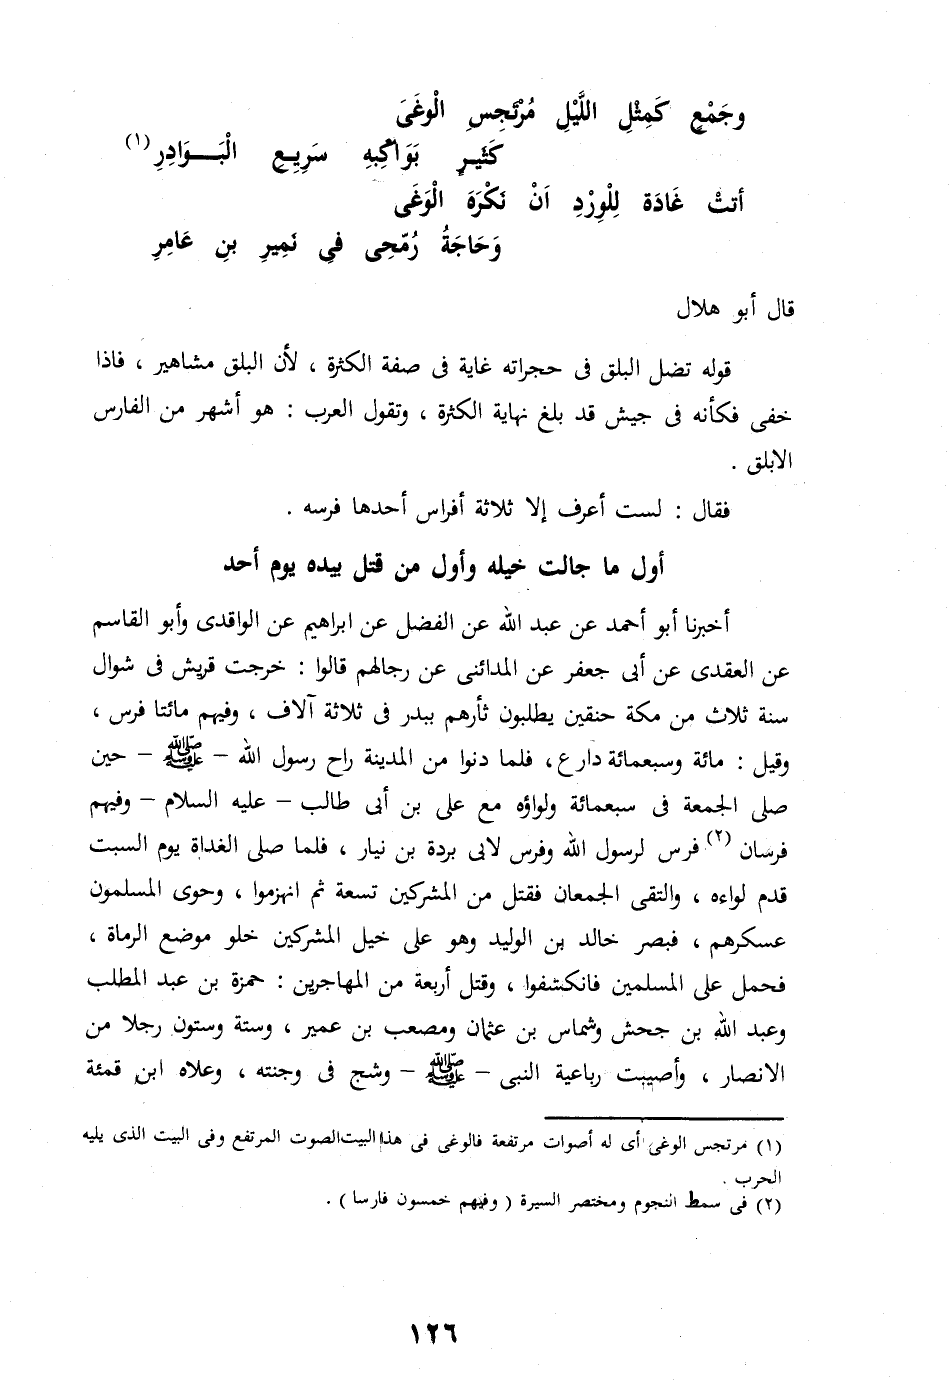 وجَمْعٍ كَمِثْلِ اللَّيْلِ مُرْتَجِسِ الْوغَىَ
كَثَيرٍ بَوَاكِبِهِ سَرِيعِ الْبَـــوَادِرِ (١)
أتتْ غَادَة لِلْوِرْدِ اَنْ نَكْرَهَ الْوَغَى
وَحَاجَةُ رُمّحِى فيِ نَمِيرِ بنِ عَامِرِ
قال أبو هلال
قوله تضل البلق فى حجراته غاية فى صفة الكثرة ، لأن البلق مشاهير ، فاذا
خفى فكأنه فى جيش قد بلغ نهاية الكثرة ، وتقول العرب : هو أشهر من الفارس
الابلق .
فقال : لست أعرف إلا ثلاثة أفراس أحدها فرسه .
أول ما جالت خيله وأول من قتل بيده يوم أحد
أخبرنا أبو أحمد عن عبد الله عن الفضل عن ابراهيم عن الواقدى وأبو القاسم
عن العقدى عن أبى جعفر عن المدائنى عن رجالهم قالوا : خرجت قريش فى شوال
سنة ثلاث من مكة حنقين يطلبون ثأرهم ببدر فى ثلاثة آلاف ، وفيهم مائتا فرس ،
وقيل : مائة وسبعمائة دارع ، فلما دنوا من المدينة راح رسول الله – ﷺ – حين
صلى الجمعة فى سبعمائة ولواؤه مع على بن أبى طالب – عليه السلام – وفيهم
فرسان (٢) فرس لرسول الله وفرس لابى بردة بن نيار ، فلما صلى الغداة يوم السبت
قدم لواءه ، والتقى الجمعان فقتل من المشركين تسعة ثم انهزموا ، وحوى المسلمون
عسكرهم ، فبصر خالد بن الوليد وهو على خيل المشركين خلو موضع الرماة ،
فحمل على المسلمين فانكشفوا ، وقتل أربعة من المهاجرين : حمزة بن عبد المطلب
وعبد الله بن جحش وشماس بن عثمان ومصعب بن عمير ، وستة وستون رجلا من
الانصار ، وأصيبت رباعية النبى – ﷺ – وشج فى وجنته ، وعلاه ابن قمئة
(١) مرتجس الوغى أى له أصوات مرتفعة فالوغى فى هذا البيت الصوت المرتفع وفى البيت الذى يليه
الحرب .
(٢) فى سمط النجوم ومختصر السيرة ( وفيهم خمسون فارسا ) .
١٢٦